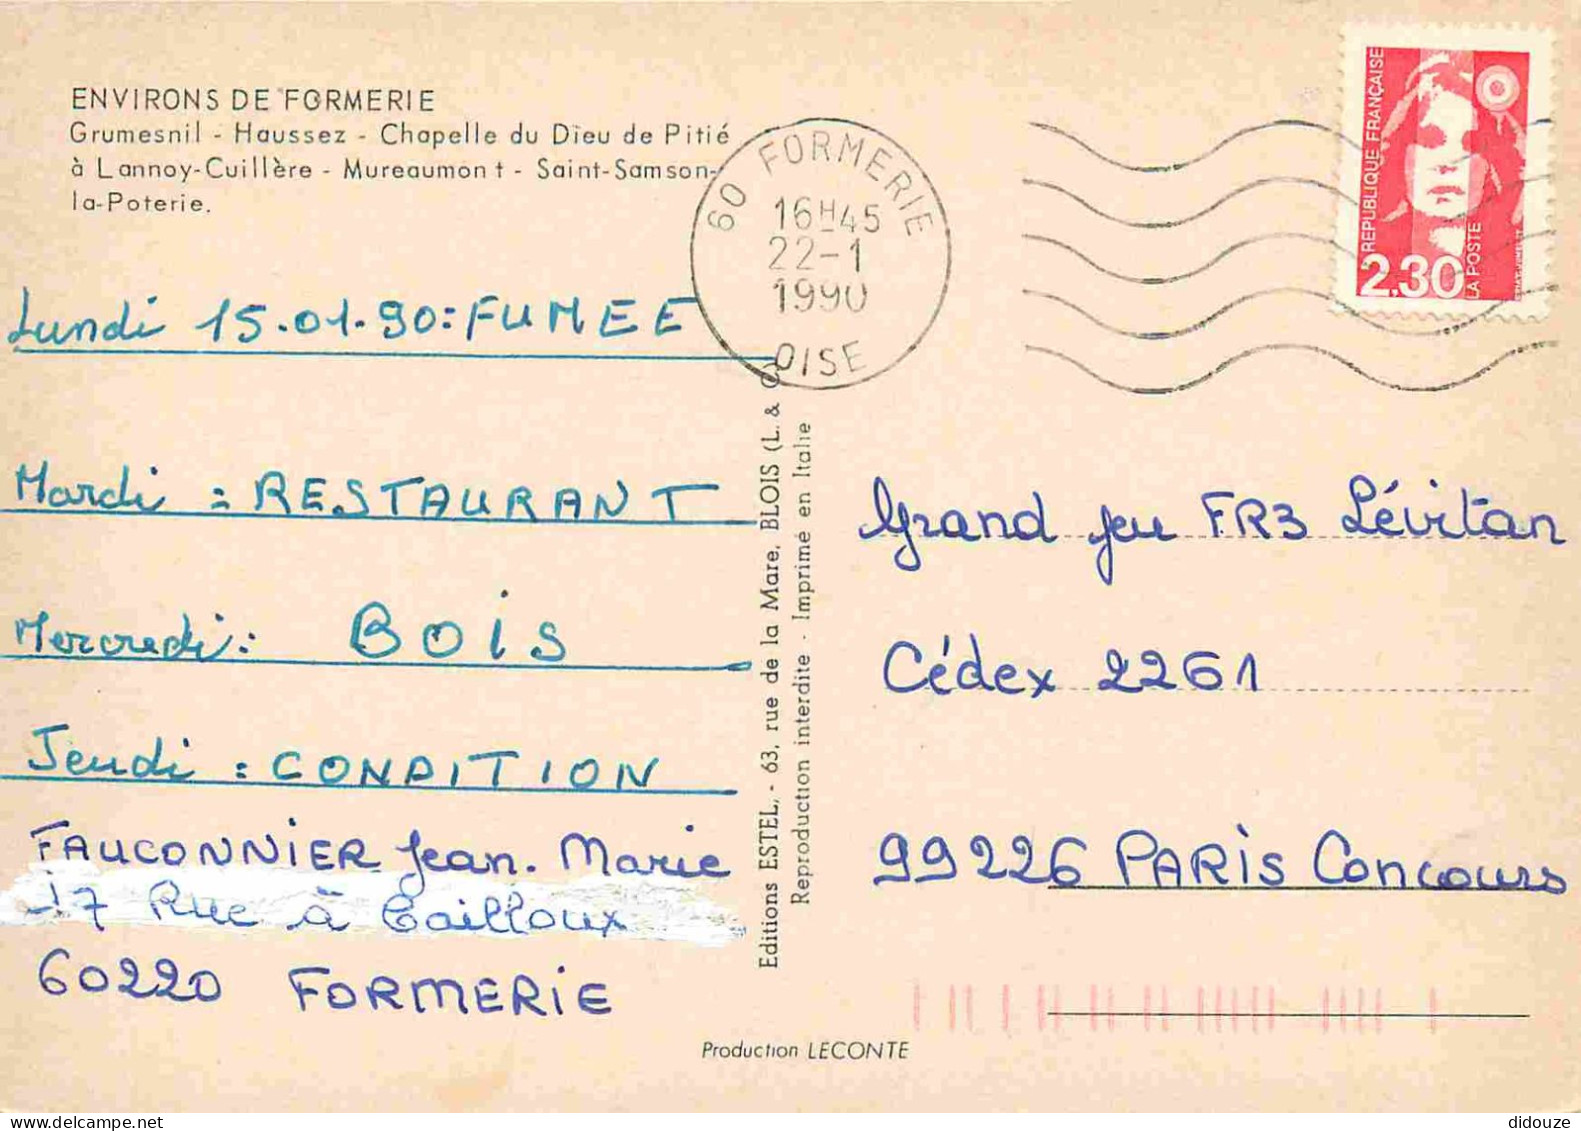 ENVIRONS DE FORMERIE
Grumesnil - Haussez - Chapelle du Dieu de Pitié
à Lannoy-Cuillère - Mureaumont - Saint-Samson-
la-Poterie.
60 FORMERIE
16H45
22-1
1990
OISE
REPUBLIQUE FRANÇAISE
2,30
LA POSTE
Lundi 15.01.90: FUMEE
Mardi : RESTAURANT
Mercredi: BOIS
Jeudi : CONDITION
FAUCONNIER Jean. Marie
17 Rue à Cailloux
60220 FORMERIE
Editions ESTEL, - 63, rue de la Mare, BLOIS (L. & C.)
Reproduction interdite - Imprimé en Italie
Grand jeu FR3 Lévitan
Cédex 2261
99226 PARIS Concours
Production LECONTE
didouze